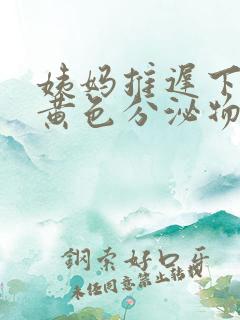 姨妈推迟下
黄色分泌物
钢索好口牙
未经同意禁止转载